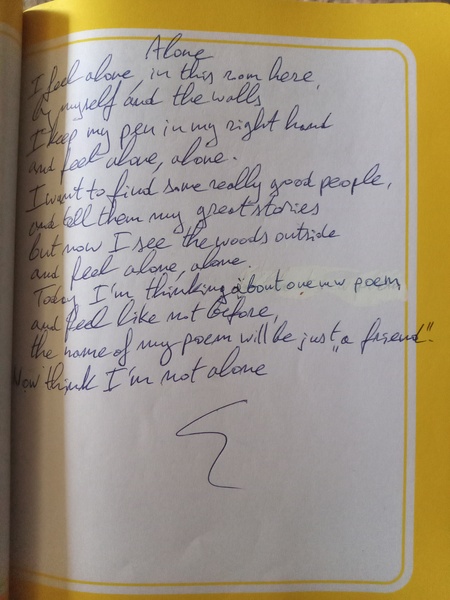 Alone
I feel alone, in this room here,
by myself and the walls
I keep my pen in my right hand
and feel alone, alone.
I want to find some really good people,
and tell them my great stories
but now I see the woods outside
and feel alone, alone.
Today I'm thinking about one new poem,
and feel like not before,
the name of my poem will be just „a friend".
Now think I'm not alone